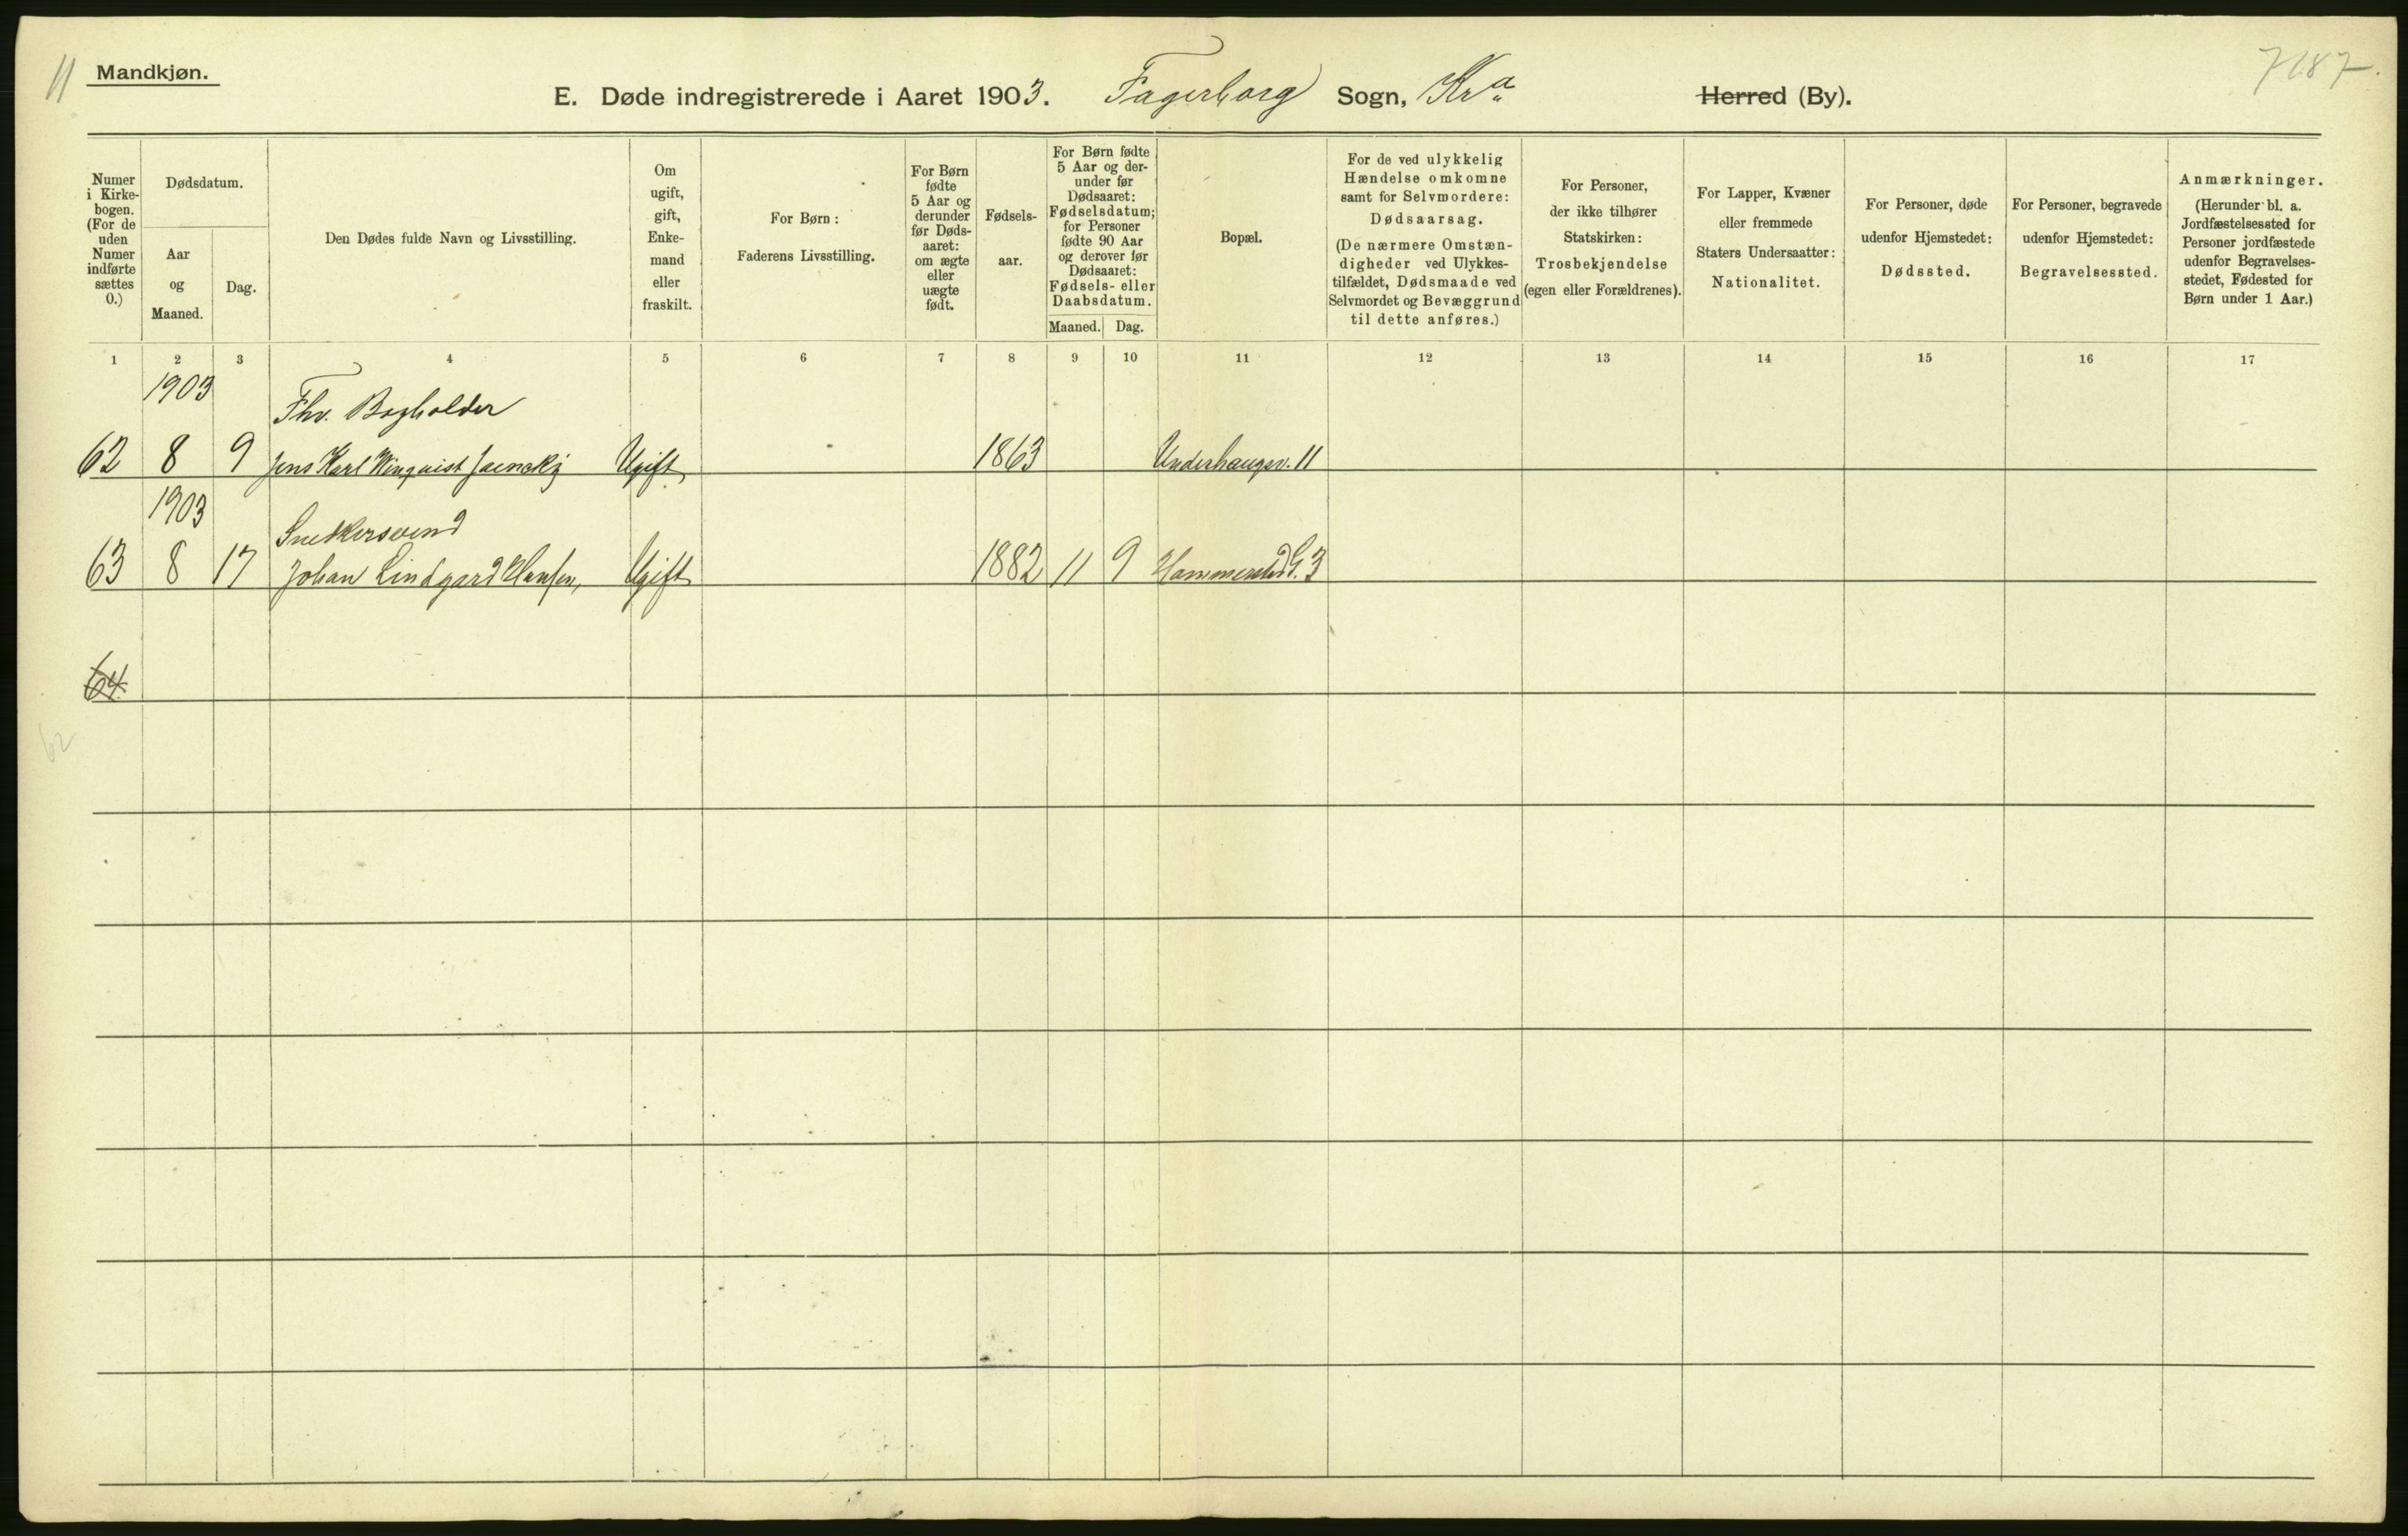 11
Mandkjøn.
E. Døde indregistrerede i Aaret 1903. Fagerborg Sogn, Kra Herred (By).
7187.
Numer i Kirkebogen. (For de uden Numer indførte sættes 0.)
Dødsdatum.
Aar og Maaned.
Dag.
Den Dødes fulde Navn og Livsstilling.
Om ugift, gift, Enkemand eller fraskilt.
For Børn: Faderens Livsstilling.
For Børn fødte 5 Aar og derunder før Dødsaaret: om ægte eller uægte født.
Fødselsaar.
For Børn fødte 5 Aar og derunder før Dødsaaret: Fødselsdatum; for Personer fødte 90 Aar og derover før Dødsaaret: Fødsels- eller Daabsdatum.
Maaned. Dag.
Bopæl.
For de ved ulykkelig Hændelse omkomne samt for Selvmordere: Dødsaarsag. (De nærmere Omstændigheder ved Ulykkestilfældet, Dødsmaade ved Selvmordet og Bevæggrund til dette anføres.)
For Personer, der ikke tilhører Statskirken: Trosbekjendelse (egen eller Forældrenes).
For Lapper, Kvæner eller fremmede Staters Undersaatter: Nationalitet.
For Personer, døde udenfor Hjemstedet: Dødssted.
For Personer, begravede udenfor Hjemstedet: Begravelsessted.
Anmærkninger. (Herunder bl. a. Jordfæstelsessted for Personer jordfæstede udenfor Begravelsesstedet, Fødested for Børn under 1 Aar.)
1 2 3 4 5 6 7 8 9 10 11 12 13 14 15 16 17
1903
Fhv. Bogholder
62 8 9 Jens Karl Winquist Ugift 1863 Underhaugsv. 11
1903
Snedkersvend
63 8 17 Johan Lindgard Hansen, Ugift 1882 11 9 Hammerstad G. 3
64
62